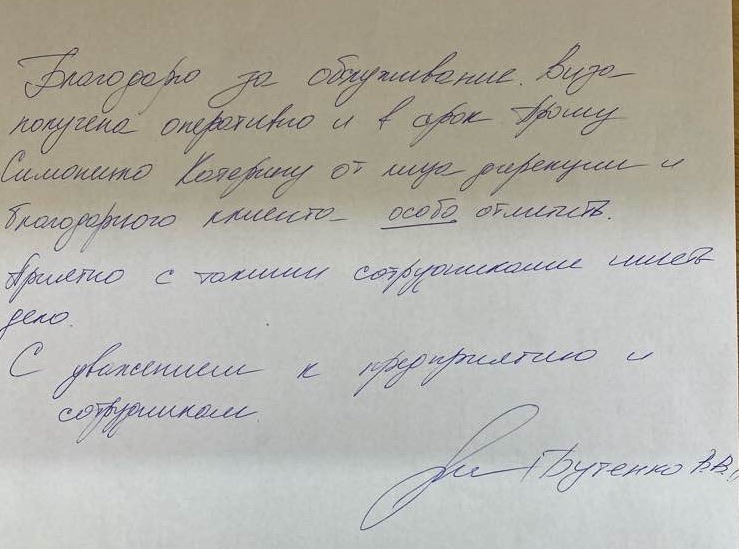 Благодарю за обслуживание. Виза
получена оперативно и в срок Прошу
Симоненко Катерину от лица дирекции и
благодарного клиента особо отметить.
Приятно с такими сотрудниками иметь
дело.
С уважением к предприятию и
сотрудникам.
Бутенко В.В.